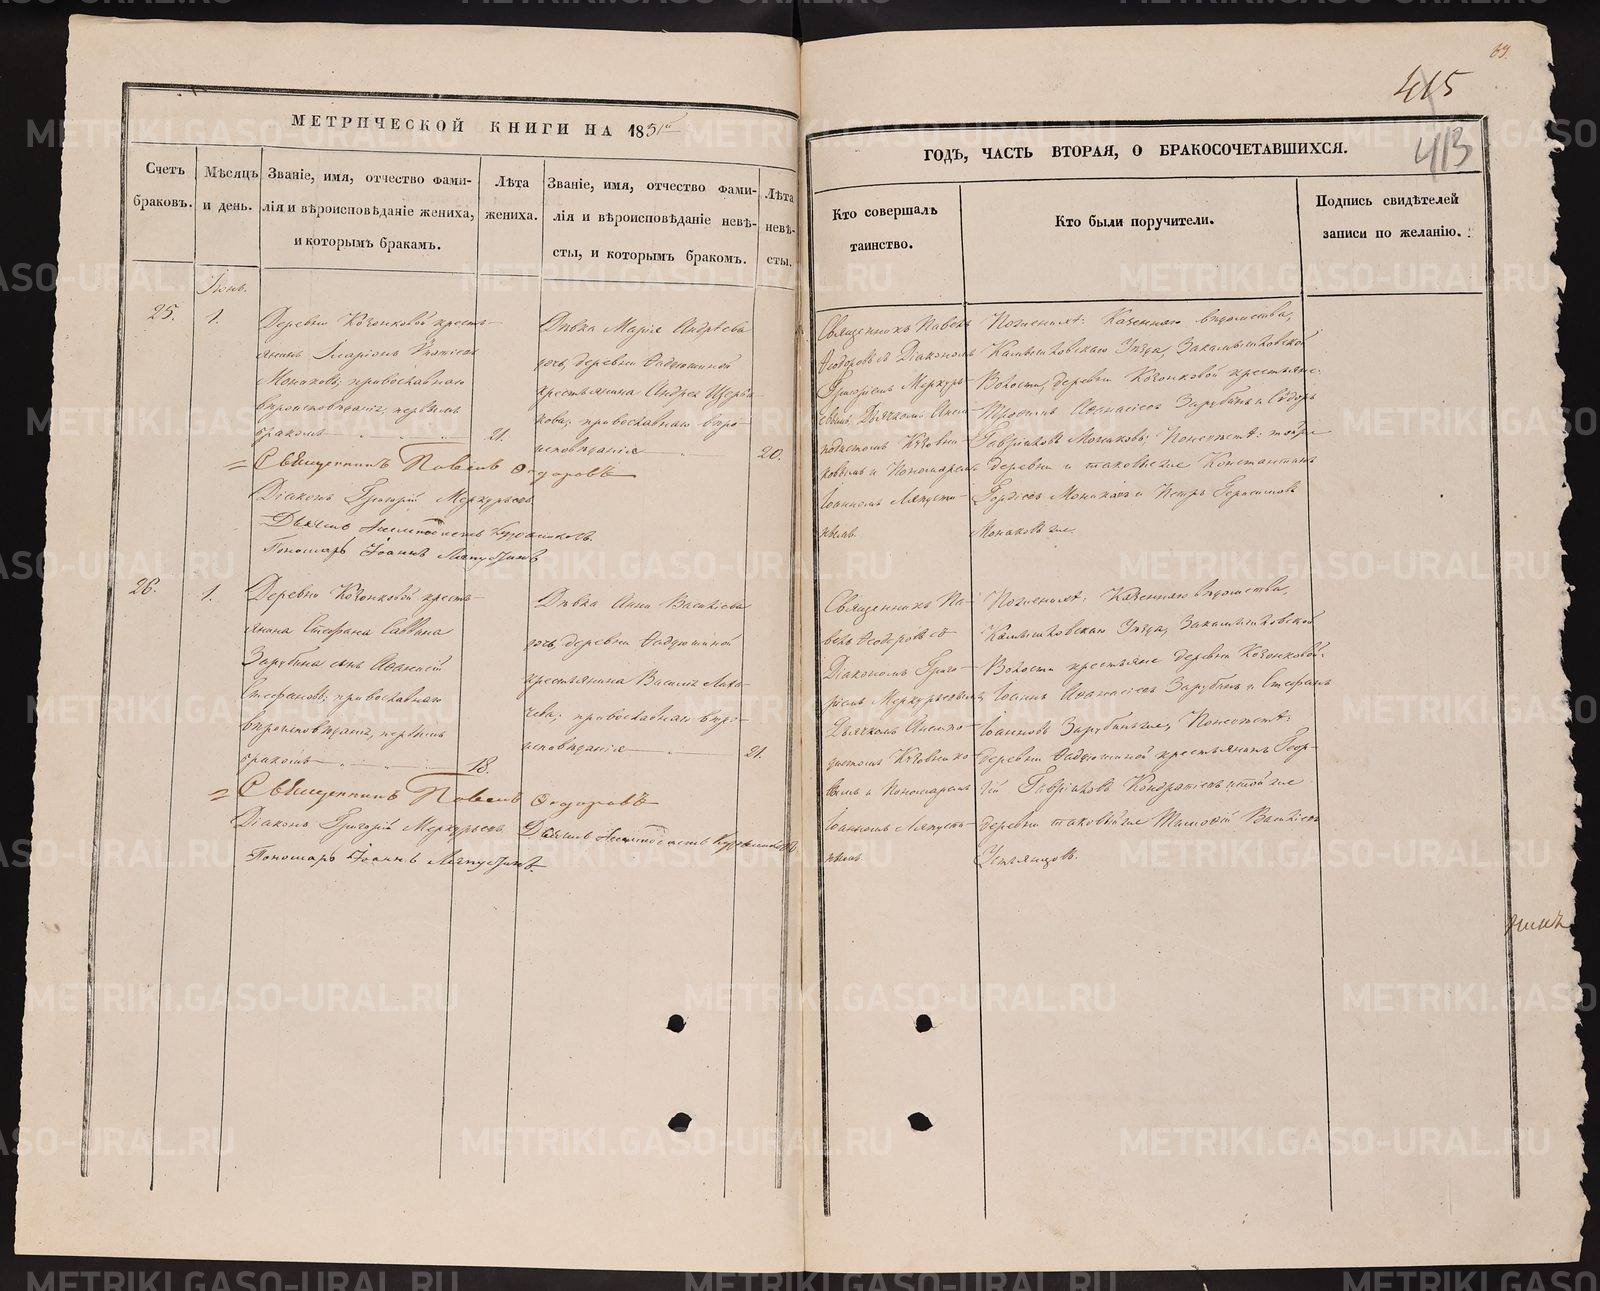 69.
415
413
МЕТРИЧЕСКОЙ КНИГИ НА 1851й
ГОДЪ, ЧАСТЬ ВТОРАЯ, О БРАКОСОЧЕТАВШИХСЯ.
Счетъ браковъ.
Мѣсяцъ и день.
Званіе, имя, отчество фами-
лія и вѣроисповѣданіе жениха,
и которымъ бракамъ.
Лѣта
жениха.
Званіе, имя, отчество фами-
лія и вѣроисповѣданіе невѣ-
сты, и которымъ бракомъ.
Лѣта
невѣ-
сты.
Кто совершалъ
таинство.
Кто были поручители.
Подпись свидѣтелей
записи по желанію.
25.
1.
Деревни Кочонковой кресть-
янинъ Иларіонъ
Монаковъ; православнаго
вѣроисповѣданія, первымъ
бракомъ
21.
Дѣвка Марія Андрѣева
дочь, деревни Фадюшиной
крестьянина Андрея Щерба-
кова; православнаго вѣро-
исповѣданія
20.
Священникъ Павелъ
Ѳеодоровъ съ Діакономъ
Григоріемъ Меркурь-
евымъ, Дьячкомъ
и Пономаремъ
Іоанномъ Ляпусти-
нымъ.
Казеннаго вѣдомства,
Камышловскаго Уѣзда, Закамышловской
Волости, деревни Кочонковой крестьяне:
Аѳанасіевъ Зарубинъ и Сидоръ
Гавріиловъ Монаковъ; той же
деревни и таковые же Константинъ
Гордѣевъ Монаковъ и Петръ Герасимовъ
Монаковъ же.
Священникъ Павелъ Ѳедоровъ
Діаконъ Григорій Меркурьевъ
Пономарь Іоаннъ Ляпустинъ
26.
1.
Деревни Кочонковой кресть-
янина Стефана Саввина
Зарубина сынъ Аѳанасій
Стефановъ; православнаго
вѣроисповѣданія, первымъ
бракомъ
18.
Дѣвка Анна Василіева
дочь, деревни Фадюшиной
крестьянина Василія Лиха-
чева; православнаго вѣро-
исповѣданія
21.
Священникъ Па-
велъ Ѳеодоровъ съ
Діакономъ Григо-
ріемъ Меркурьевымъ,
Дьячкомъ
и Пономаремъ
Іоанномъ Ляпусти-
нымъ.
Казеннаго вѣдомства,
Камышловскаго Уѣзда, Закамышловской
Волости крестьяне деревни Кочонковой:
Іоаннъ Аѳанасіевъ Зарубинъ и Стефанъ
Іоанновъ Зарубинъ же;
деревни Фадюшиной крестьянинъ Геор-
гій Гавріиловъ Кондратіевъ и той же
деревни таковый же Василіевъ
Устьянцовъ.
Священникъ Павелъ Ѳедоровъ
Діаконъ Григорій Меркурьевъ
Пономарь Іоаннъ Ляпустинъ
METRIKI.GASO-URAL.RU